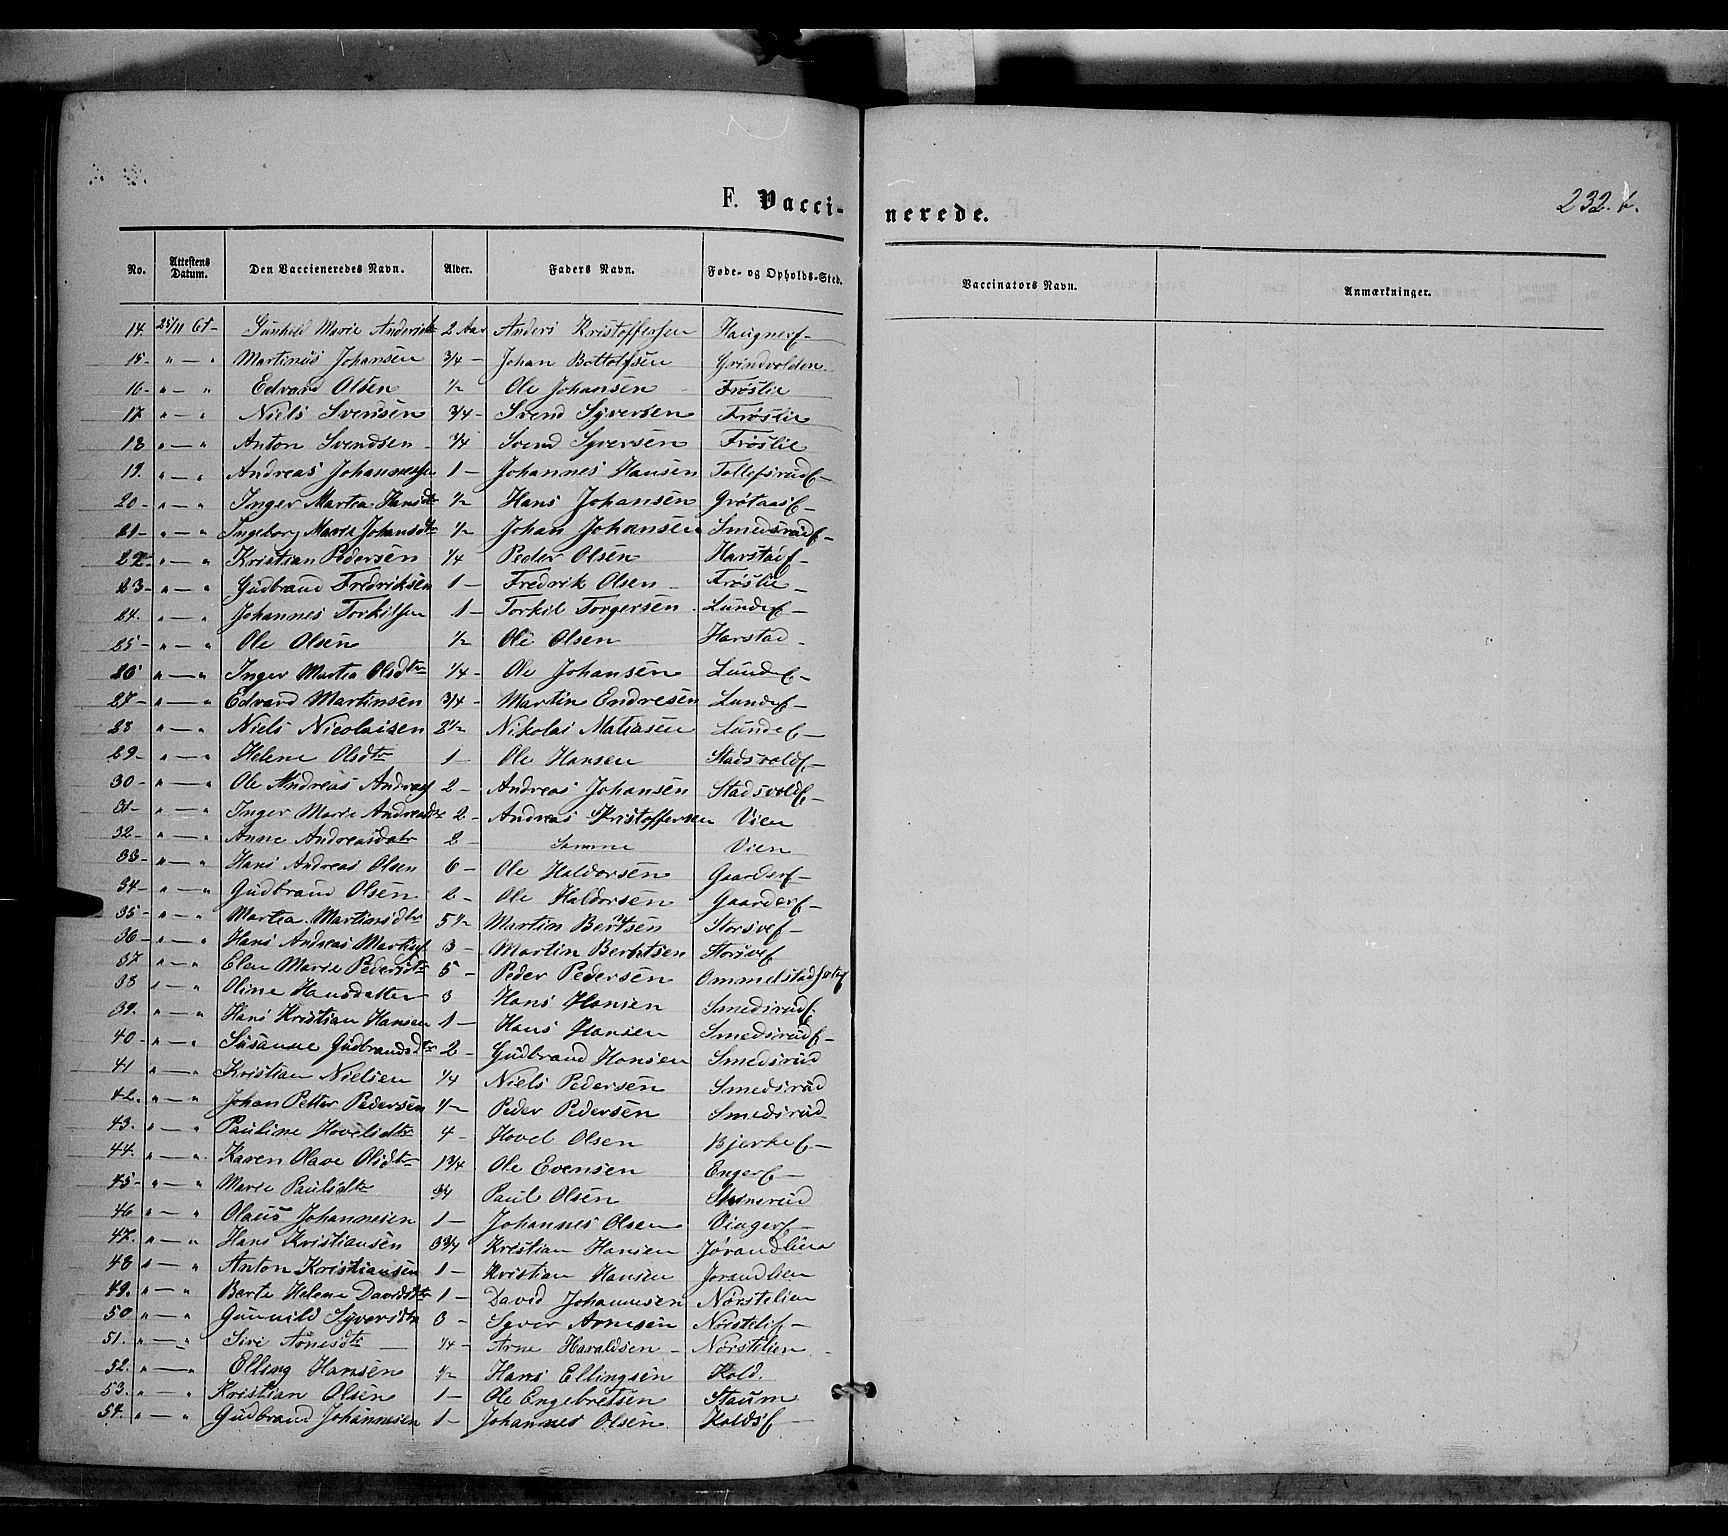 F. Vacci-
nerede.
232.b.
No. Attestens Datum. Den Vaccieneredes Navn. Alder. Faders Navn. Føde- og Opholds-Sted.
Vaccinators Navn. Anmærkninger.
14. 25/11 61- Gunhild Marie Andersdtr 2 Aar Anders Kristoffersen
15- " — " Martinus Johansen 3/4 — Johan Bottolfsen Grindvolden
16- " — " Edvard Olsen 1/2 Ole Johansen Frøslie
17- " — " Niels Svensen 3/4 - Svend Syversen Frøslie
18 " — " Anton Svendsen 3/4 Svend Syversen Frøslie
19. " — " Andreas Johannessen 1 — Johannes Hansen Tollefsrude —
20- " — " Inger Martea Hansdtr 1/2 Hans Johansen Grøtaase —
21- " — " Ingeborg Marie Johansdtr 1/2 Johan Johansen Smedsrude —
22- " — " Kristian Pedersen 1/4 Peder Olsen Harstade —
23- " — " Gudbrand Fredriksen 1 — Fredrik Olsen — Frøslie —
24. " — " Johannes Torkilsen 1 — Torkil Torgersen Lunde —
25- " — " Ole Olsen 1/2 Ole Olsen Harstad —
26 " — " Inger Martea Olsdtr 1/4 - Ole Johansen Lunde —
27- " — " Edvard Martinsen 3/4 - Martin Endresen Lunde —
28 " — " Niels Nicolaisen 2 1/2 Nikolai Matiasen Lunde —
29- " — " Helene Olsdtr 1 Ole Hansen Stadsvolde —
30- " — " Ole Andreas Andreas 2 - Andreas Johansen Stadsvolde —
31- " — " Inger Marie Andreasdtr 2 - Andreas Kristoffersen Vien
32- " — " Anne Andreasdatr 2 — Samme Vien
33- " — " Hans Andreas Olsen 6 — Ole Haldorsen Gaarder —
34- " — " Gudbrand Olsen 2 - Ole Haldorsen Gaarder —
35- " — " Martea Martinsdtr 5 1/2 Martin Bertsen Storsve —
36- " — " Hans Andreas Martins 3 — Martin Berntsen Storsve
37 " — " Elen Marie Pedersdtr 5 — Peder Pedersen
38 " — " Oline Hansdatter 3 Hans Hansen Smedsrude
39. " — " Hans Kristian Hansen 1 — Hans Hansen Smedsrude —
40- " — " Susanne Gudbrandsdtr 2 — Gudbrand Hansen Smedsrud
41 " — " Kristian Nielsen 1/4 Niels Pedersen Smedsrud
42. " — " Johan Petter Pedersen 1/2 Peder Pedersen Smedsrud
43. " — " Pauline Hovelsdtr 4 — Hovel Olsen Bjerke —
44. " — " Karen Olave Olsdtr 1 3/4 Ole Evensen Enger —
45- " — " Marie Paulsdtr 3/4 Paul Olsen Stenerud
46 " — " Olaus Johannesen 1 — Johannes Olsen Vinger —
47. " — " Hans Kristiansen 3 3/4 Kristian Hansen Jørandlien
48 " — " Anton Kristiansen 1 — Kristian Hansen Jørandlien
49. " — " Berte Helene Davidsdtr 1 — David Johannesen Nørstelien
50 " — " Gunnild Syversdtr 3 — Syver Arnesen Nørstelie —
51. " — " Siri Arnesdtr 1/4 — Arne Haraldsen — Nørstelien
52. " — " Elling Hansen 1/2 Hans Ellingsen Hold.
53. " — " Kristian Olsen 1 — Ole Engebretsen Staum
54. " — " Gudbrand Johannesen 1 — Johannes Olsen Holds —